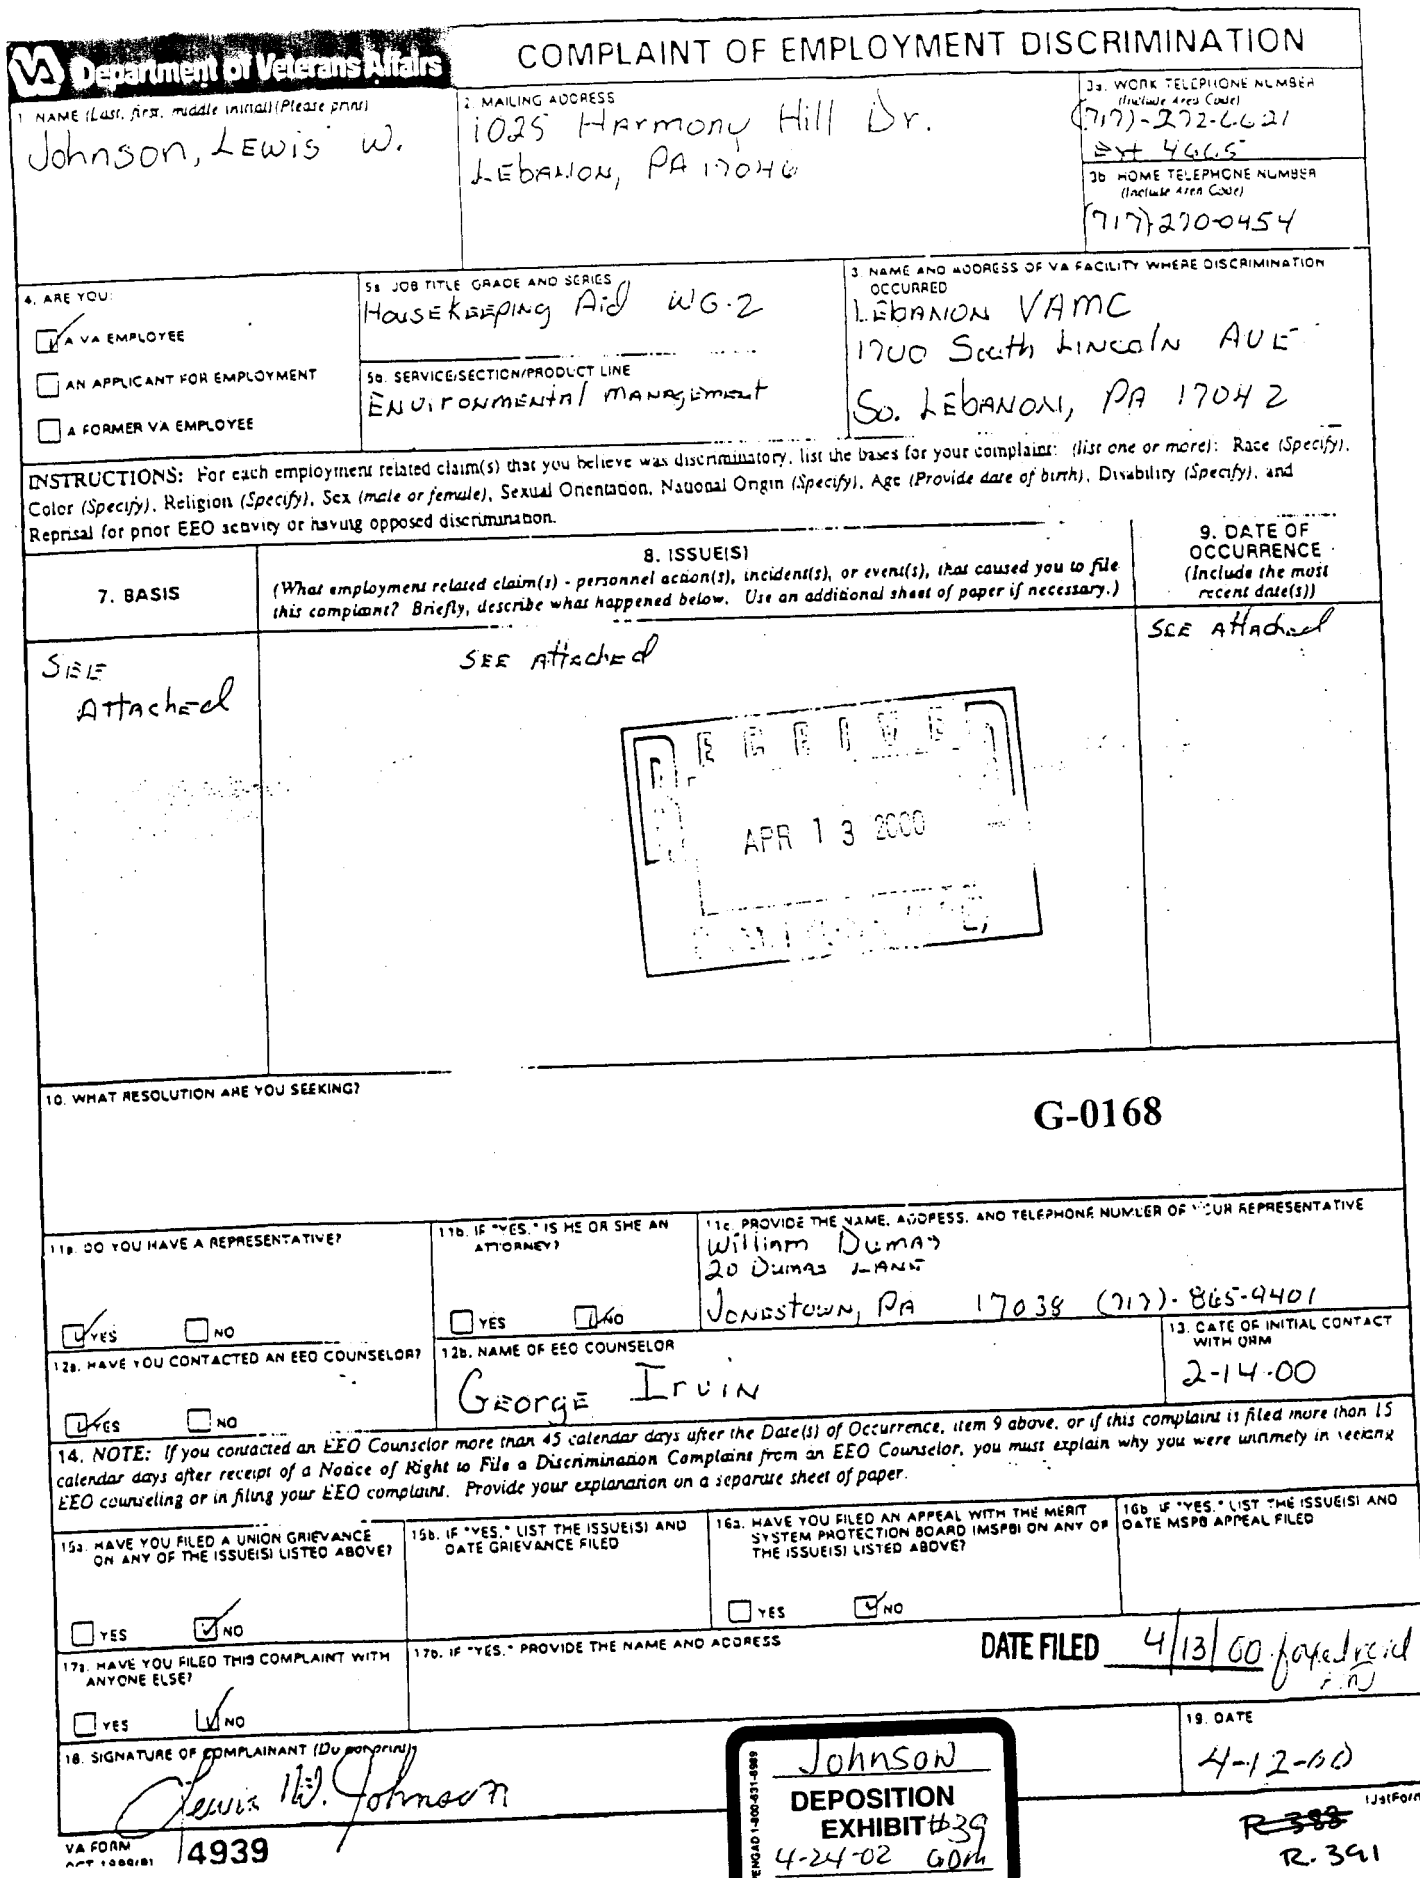 VA Department of Veterans Affairs
COMPLAINT OF EMPLOYMENT DISCRIMINATION
1 NAME (Last, first, middle initial) (Please print)
Johnson, LEWIS W.
2. MAILING ADDRESS
1025 HArmony Hill Dr.
LEBANON, PA 17046
3a. WORK TELEPHONE NUMBER
(Include Area Code)
(717)-272-6621
Ext 4665
3b HOME TELEPHONE NUMBER
(Include Area Code)
(717)-270-0454
4. ARE YOU:
A VA EMPLOYEE
AN APPLICANT FOR EMPLOYMENT
A FORMER VA EMPLOYEE
5a JOB TITLE GRADE AND SERIES
HousEKEEPING Aid WG-2
5b. SERVICE/SECTION/PRODUCT LINE
ENVIRONMENtAl MANAGEMENT
3. NAME AND ADDRESS OF VA FACILITY WHERE DISCRIMINATION
OCCURRED
LEBANON VAMC
1700 South LINColN AVE
So. LEBANON, PA 17042
INSTRUCTIONS: For each employment related claim(s) that you believe was discriminatory, list the bases for your complaint: (list one or more): Race (Specify),
Color (Specify), Religion (Specify), Sex (male or female), Sexual Orientation, National Origin (Specify), Age (Provide date of birth), Disability (Specify), and
Reprisal for prior EEO activity or having opposed discrimination.
7. BASIS
8. ISSUE(S)
(What employment related claim(s) - personnel action(s), incident(s), or event(s), that caused you to file
this complaint? Briefly, describe what happened below. Use an additional sheet of paper if necessary.)
9. DATE OF
OCCURRENCE
(Include the most
recent date(s))
SEE
AttAchEd
SEE AttachEd
SEE AttAched
RECEIVED
APR 13 2000
10. WHAT RESOLUTION ARE YOU SEEKING?
G-0168
11a. DO YOU HAVE A REPRESENTATIVE?
YES NO
11b. IF "YES," IS HE OR SHE AN
ATTORNEY?
YES NO
11c. PROVIDE THE NAME, ADDRESS, AND TELEPHONE NUMBER OF YOUR REPRESENTATIVE
William DumAs
20 Dumas LANE
JONESTOWN, PA 17038 (717)-865-9401
12a. HAVE YOU CONTACTED AN EEO COUNSELOR?
YES NO
12b. NAME OF EEO COUNSELOR
GEorgE IrvIN
13. DATE OF INITIAL CONTACT
WITH ORM
2-14-00
14. NOTE: If you contacted an EEO Counselor more than 45 calendar days after the Date(s) of Occurrence, item 9 above, or if this complaint is filed more than 15
calendar days after receipt of a Notice of Right to File a Discrimination Complaint from an EEO Counselor, you must explain why you were untimely in seeking
EEO counseling or in filing your EEO complaint. Provide your explanation on a separate sheet of paper.
15a. HAVE YOU FILED A UNION GRIEVANCE
ON ANY OF THE ISSUE(S) LISTED ABOVE?
YES NO
15b. IF "YES," LIST THE ISSUE(S) AND
DATE GRIEVANCE FILED
16a. HAVE YOU FILED AN APPEAL WITH THE MERIT
SYSTEM PROTECTION BOARD (MSPB) ON ANY OF
THE ISSUE(S) LISTED ABOVE?
YES NO
16b. IF "YES," LIST THE ISSUE(S) AND
DATE MSPB APPEAL FILED
17a. HAVE YOU FILED THIS COMPLAINT WITH
ANYONE ELSE?
YES NO
17b. IF "YES," PROVIDE THE NAME AND ADDRESS
DATE FILED 4/13/00
18. SIGNATURE OF COMPLAINANT (Do not print)
Lewis W. Johnson
19. DATE
4-12-00
VA FORM
4939
PENGAD 1-800-631-6989
Johnson
DEPOSITION
EXHIBIT #39
4-24-02 GDM
R-388
R-391